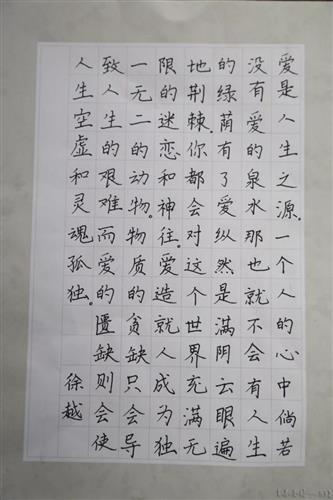 爱是人生之源。一个人的心中倘若
没有爱的泉水那也就不会有人生
的绿荫有了爱纵然是满阴云眼遍
地荆棘你都会对这个世界充满无
限的迷恋和神往。爱造就人成为独
一无二的动物。物质的贫缺只会导
致人生的艰难而爱的匮缺则会使
人生空虚和灵魂孤独。 徐越